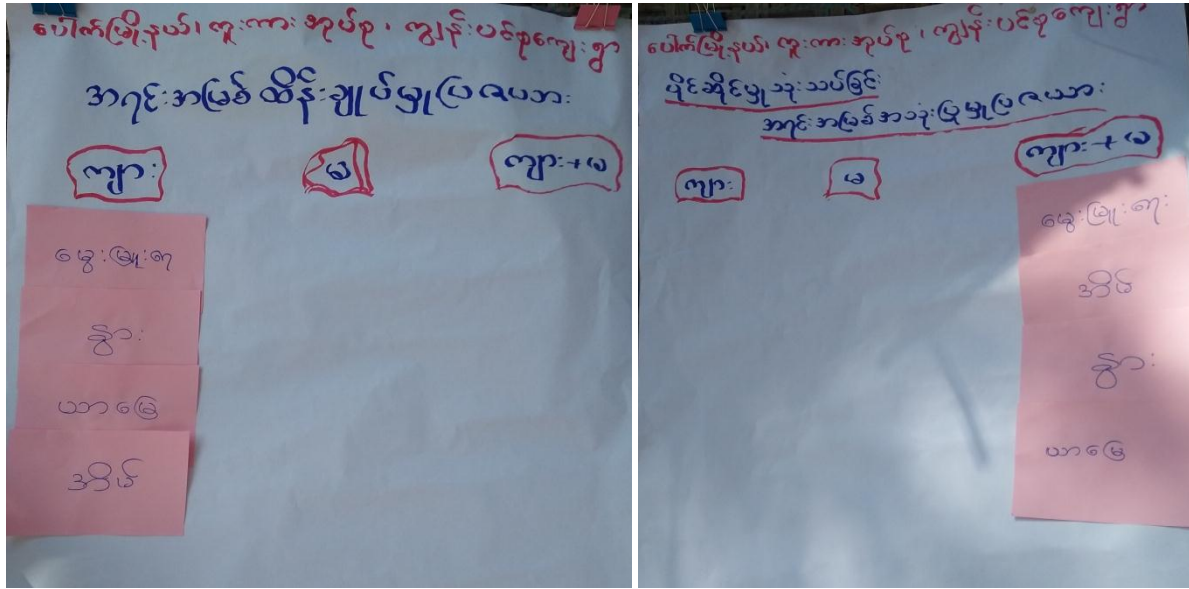 ပေါက်မြို့နယ်၊ ကူးကားအုပ်စု၊ ကျွန်းပင်စုကျေးရွာ
အရင်းအမြစ်ထိန်းချုပ်မှုပြဇယား
ကျား
မ
ကျား+မ
မွေးမြူရေး
နွား
ယာမြေ
အိမ်
ပေါက်မြို့နယ်၊ ကူးကားအုပ်စု၊ ကျွန်းပင်စုကျေးရွာ
ပိုင်ဆိုင်မှုသုံးသပ်ခြင်း
အရင်းအမြစ်အသုံးပြုမှုပြဇယား
ကျား
မ
ကျား+မ
မွေးမြူရေး
အိမ်
နွား
ယာမြေ